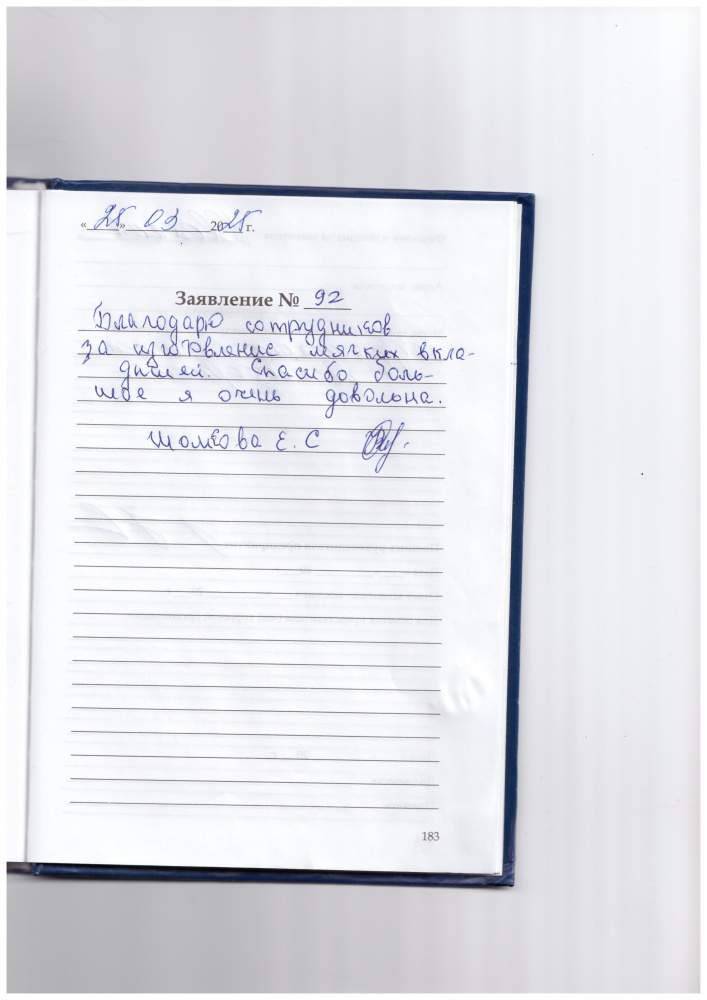 «25» 03 2025 г.
Заявление № 92
Благодарю сотрудников
за изготовление мягких вкла-
дышей. Спасибо боль-
шое я очень довольна.
Е. С
183